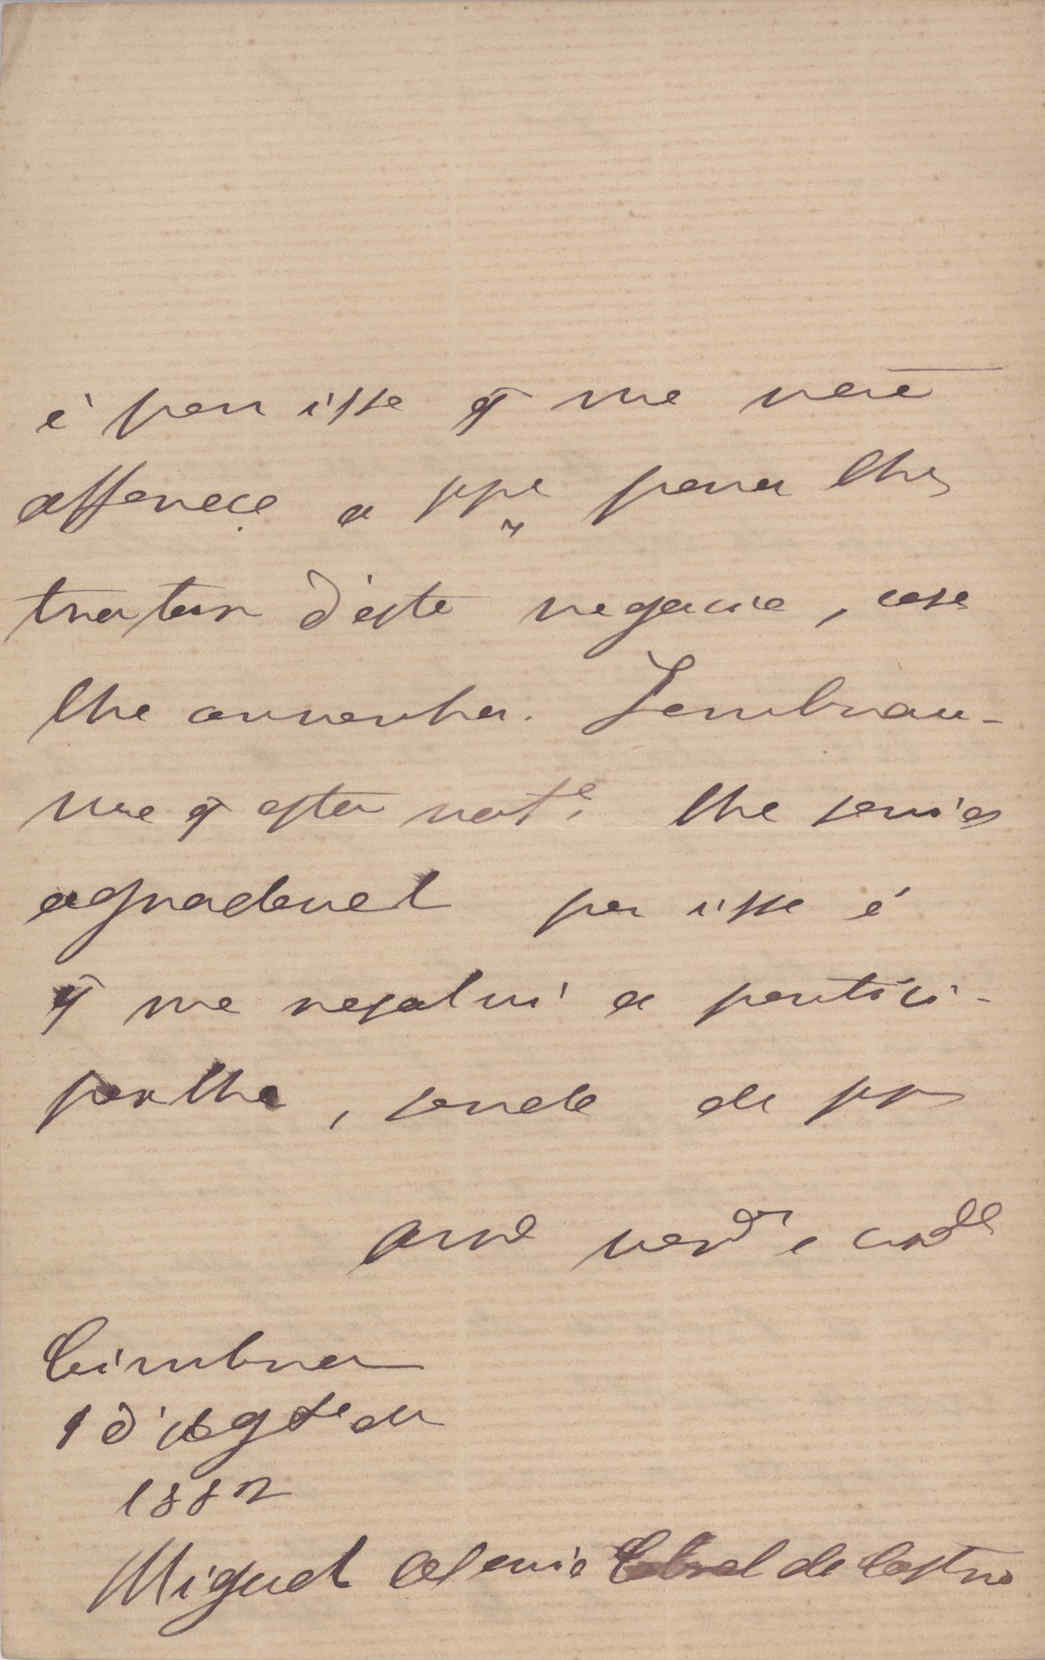 é por isso q̃ me
offereço a para lhe
tratar d'este negocio, caso
lhe convenha. Lembrou-
me q̃ esta not.ª lhe seria
agradavel por isso é
q̃ me resolvi a partici-
par lhe, sendo de
am.º verd.º e
Coimbra
1 d'Ag.to de
1882
Miguel Osorio Cabral de Castro